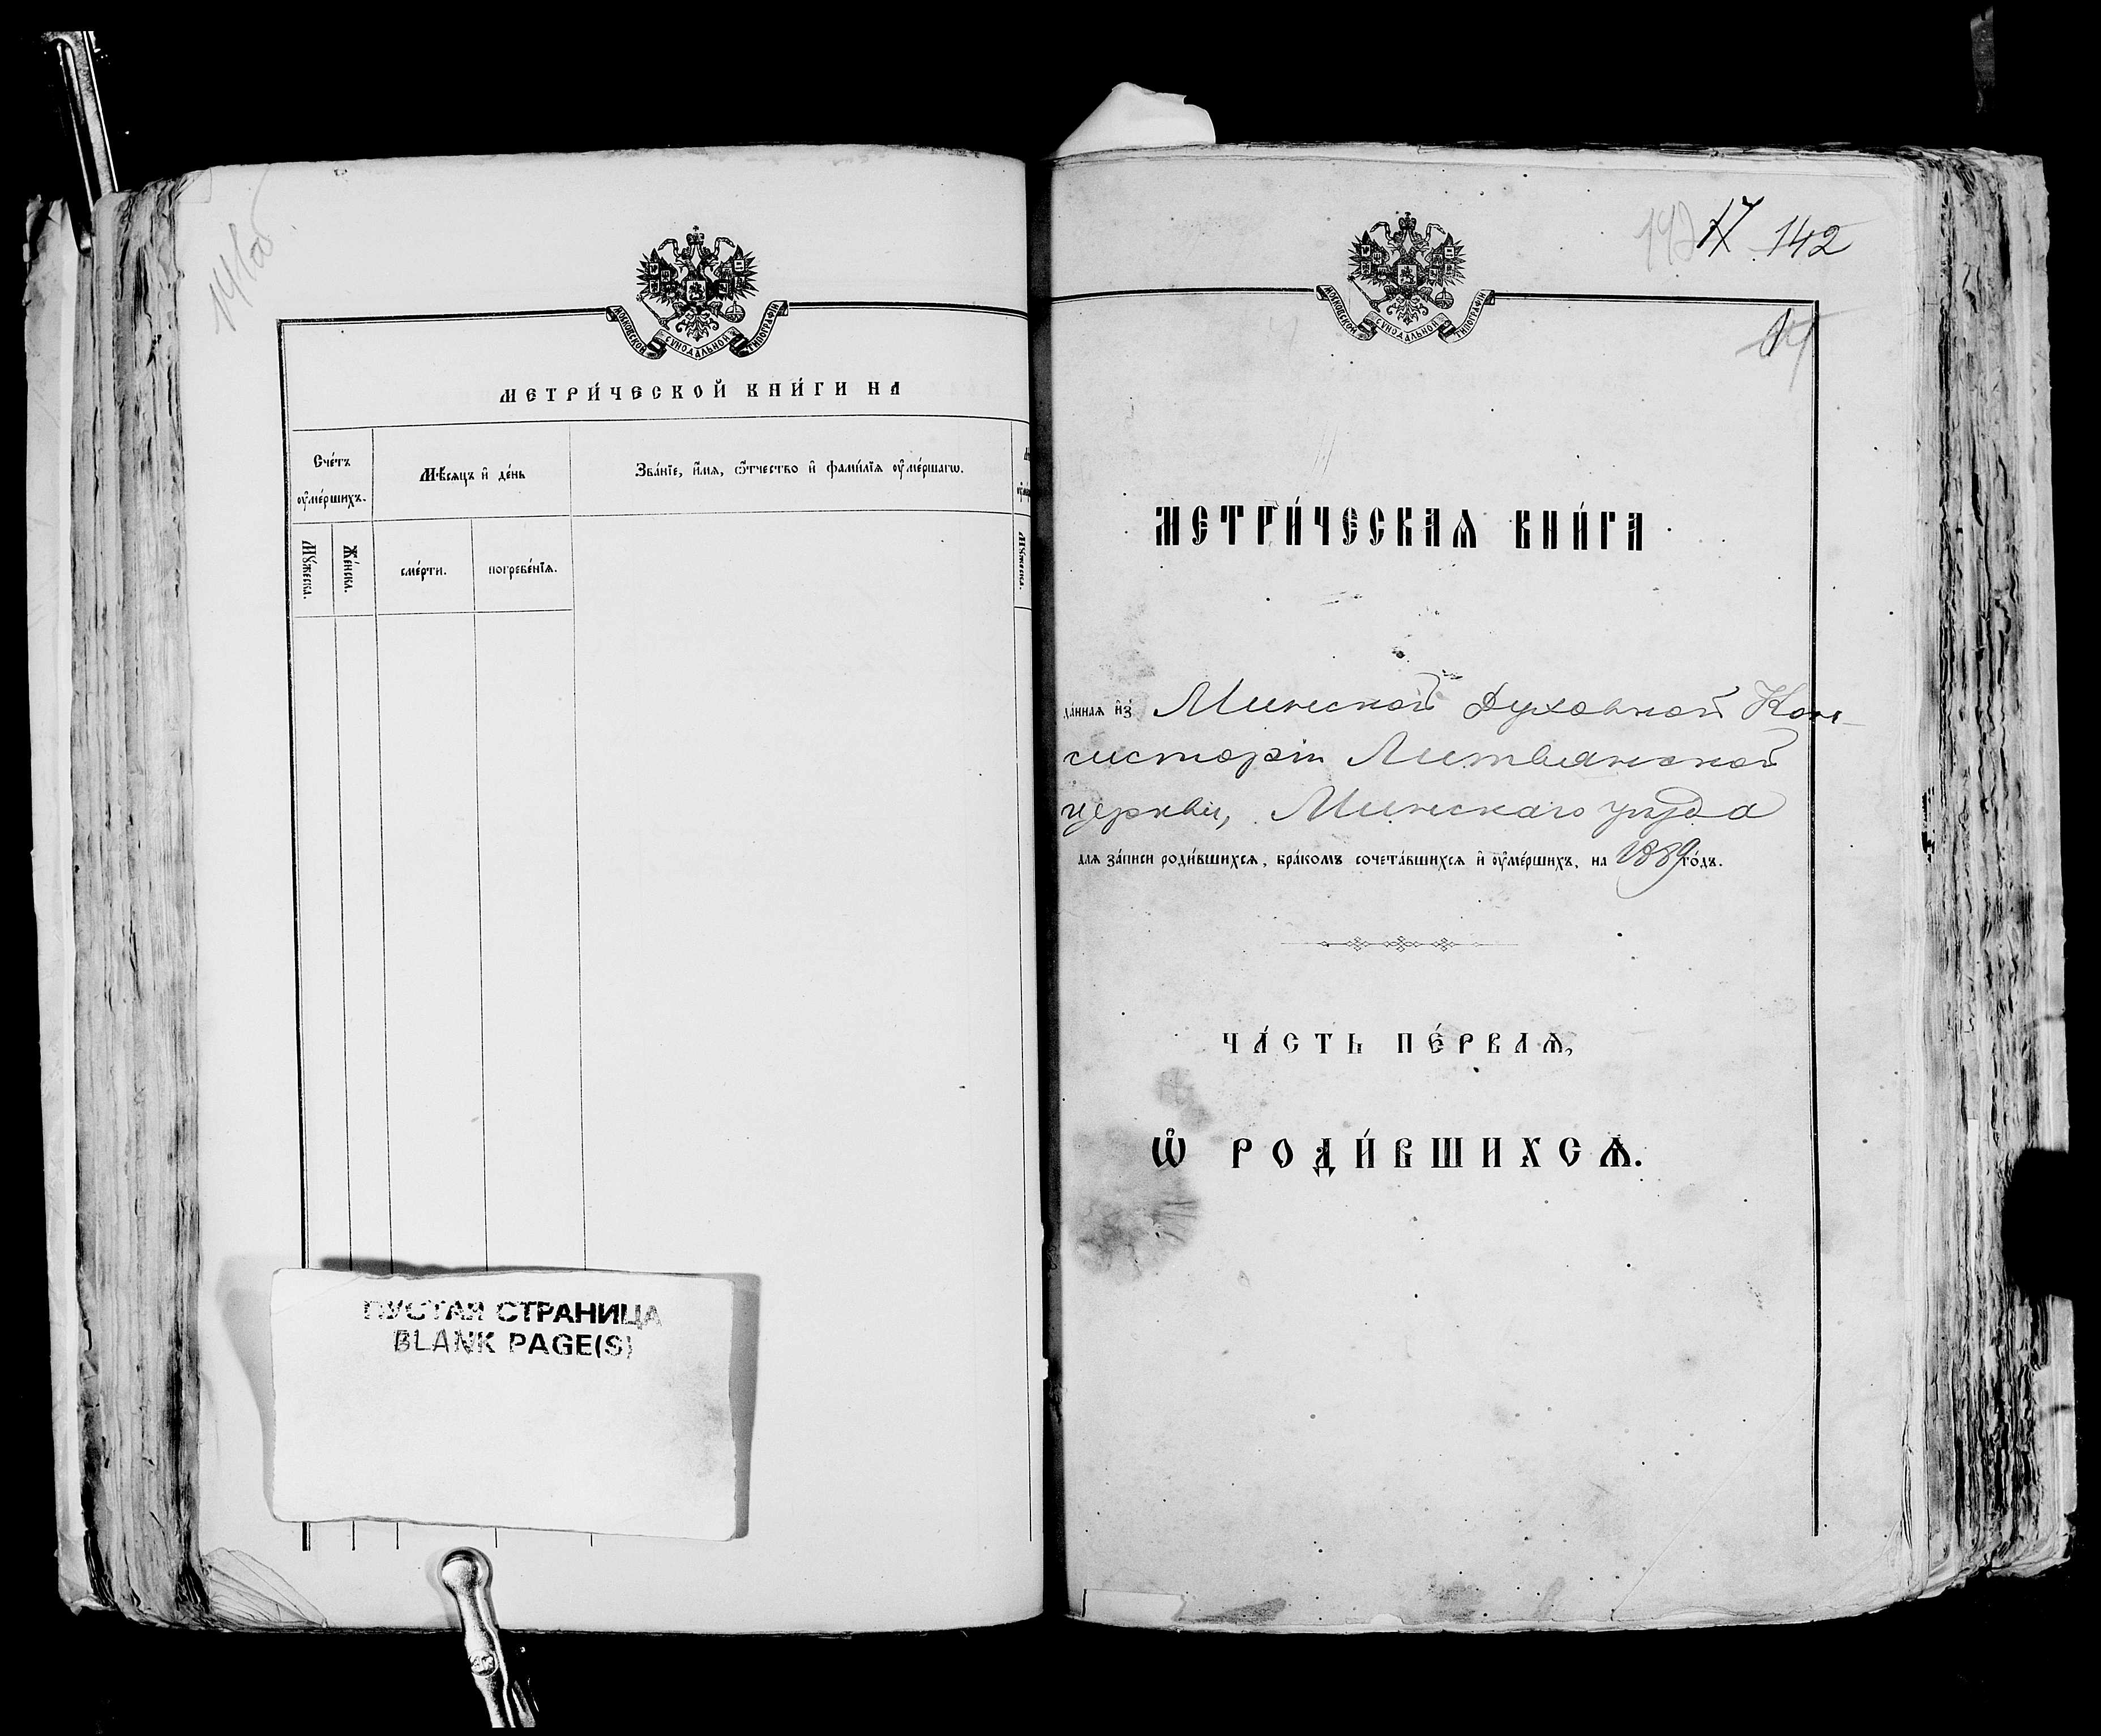 141об.
МОСКОВСКОЙ СѴНОДАЛЬНОЙ ТИПОГРАФІИ
МЕТРИ́ЧЕСКОЙ КНИ́ГИ НА
Сче́тъ ᲂу҆ме́ршихъ.
Мѣ́сяцъ и҆ де́нь
Зва́нїе, и҆́мѧ, ѻ҆́тчество и҆ фами́лїѧ ᲂу҆ме́ршагѡ.
Мꙋ́жеска.
Же́нска.
сме́рти.
погребе́нїѧ.
Мꙋ́жеска.
ПУСТАЯ СТРАНИЦА
BLANK PAGE(S)
142 17 142
МОСКОВСКОЙ СѴНОДАЛЬНОЙ ТИПОГРАФІИ
МЕТРИ́ЧЕСКАѦ КНИ́ГА
да́ннаѧ и҆з̾ Минской Духовной Кон-
систоріи Литвянской
церкви, Минскаго уѣзда
длѧ за́писи роди́вшихсѧ, бра́комъ сочета́вшихсѧ и҆ ᲂу҆ме́ршихъ, на 1889 го́дъ.
ЧА́СТЬ ПЕ́РВАѦ,
Ѡ҆ РОДИ́ВШИХСѦ.